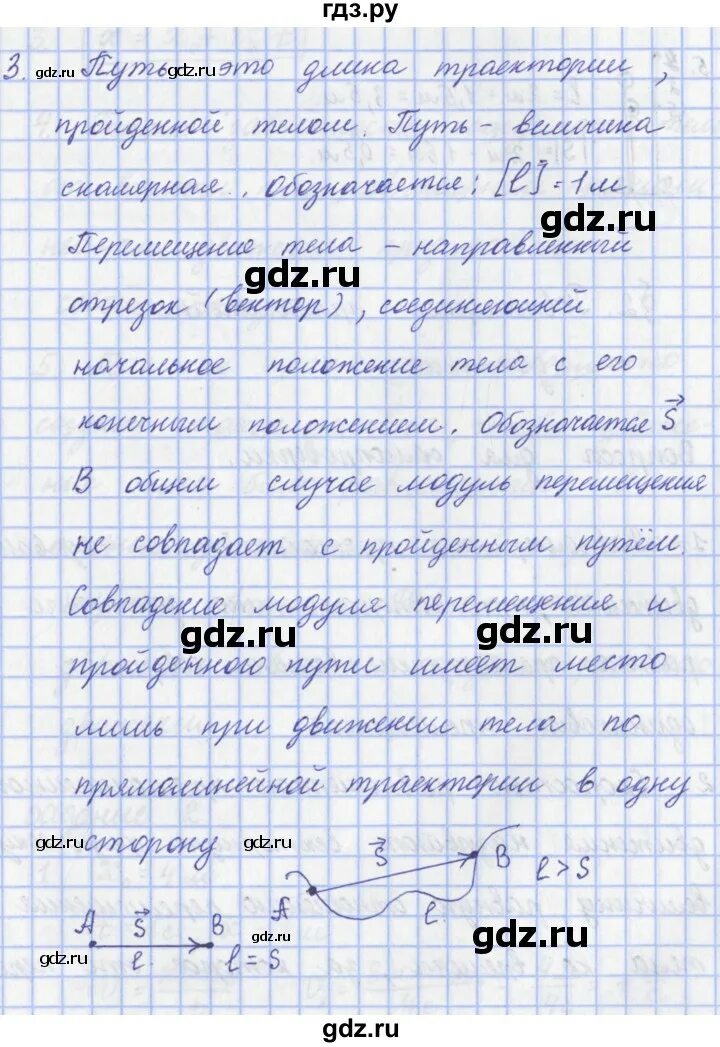 гдз.ру
3. gdz.ru Путь - это длина траектории,
пройденной телом. Путь - величина
скалярная. Обозначается: [l] = 1 м.
Перемещение тела - направленный
gdz.ru gdz.ru
отрезок (вектор), соединяющий
начальное положение тела с его
конечным положением. Обозначается S⃗
В общем случае модуль перемещения
не совпадает с пройденным путём.
Совпадение модуля перемещения и
gdz.ru gdz.ru
пройденного пути имеет место
лишь при движении тела по
прямолинейной траектории в одну
сторону
S⃗ B l > S
A l
A S⃗ B
l l = S
gdz.ru gdz.ru gdz.ru gdz.ru
gdz.ru